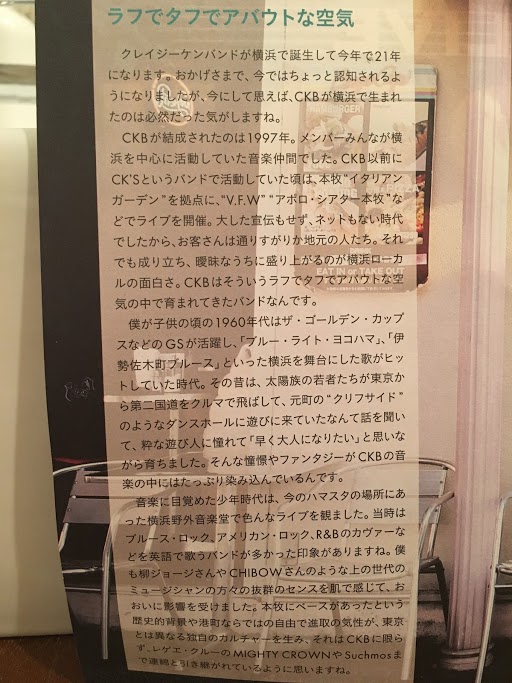 ラフでタフでアバウトな空気
クレイジーケンバンドが横浜で誕生して今年で21年
になります。おかげさまで、今ではちょっと認知されるよ
うになりましたが、今にして思えば、CKBが横浜で生まれ
たのは必然だった気がしますね。
CKBが結成されたのは1997年。メンバーみんなが横
浜を中心に活動していた音楽仲間でした。CKB以前に
CK'Sというバンドで活動していた頃は、本牧“イタリアン
ガーデン”を拠点に、“V.F.W”“アポロ・シアター本牧”な
どでライブを開催。大した宣伝もせず、ネットもない時代
でしたから、お客さんは通りすがりか地元の人たち。それ
でも成り立ち、曖昧なうちに盛り上がるのが横浜ローカ
ルの面白さ。CKBはそういうラフでタフでアバウトな空
気の中で育まれてきたバンドなんです。
僕が子供の頃の1960年代はザ・ゴールデン・カップ
スなどのGSが活躍し、「ブルー・ライト・ヨコハマ」、「伊
勢佐木町ブルース」といった横浜を舞台にした歌がヒッ
トしていた時代。その昔は、太陽族の若者たちが東京か
ら第二国道をクルマで飛ばして、元町の“クリフサイド”
のようなダンスホールに遊びに来ていたなんて話を聞い
て、粋な遊び人に憧れて「早く大人になりたい」と思いな
がら育ちました。そんな憧憬やファンタジーがCKBの音
楽の中にはたっぷり染み込んでいるんです。
音楽に目覚めた少年時代は、今のハマスタの場所にあ
った横浜野外音楽堂で色んなライブを観ました。当時は
ブルース・ロック、アメリカン・ロック、R&Bのカヴァーな
どを英語で歌うバンドが多かった印象がありますね。僕
も柳ジョージさんやCHIBOWさんのような上の世代の
ミュージシャンの方々の抜群のセンスを肌で感じて、お
おいに影響を受けました。本牧にベースがあったという
歴史的背景や港町ならではの自由で進取の気性が、東京
とは異なる独自のカルチャーを生み、それはCKBに限ら
ず、レゲエ・クルーのMIGHTY CROWNやSuchmosま
で連綿と引き継がれているように思いますね。
EAT IN or TAKE OUT